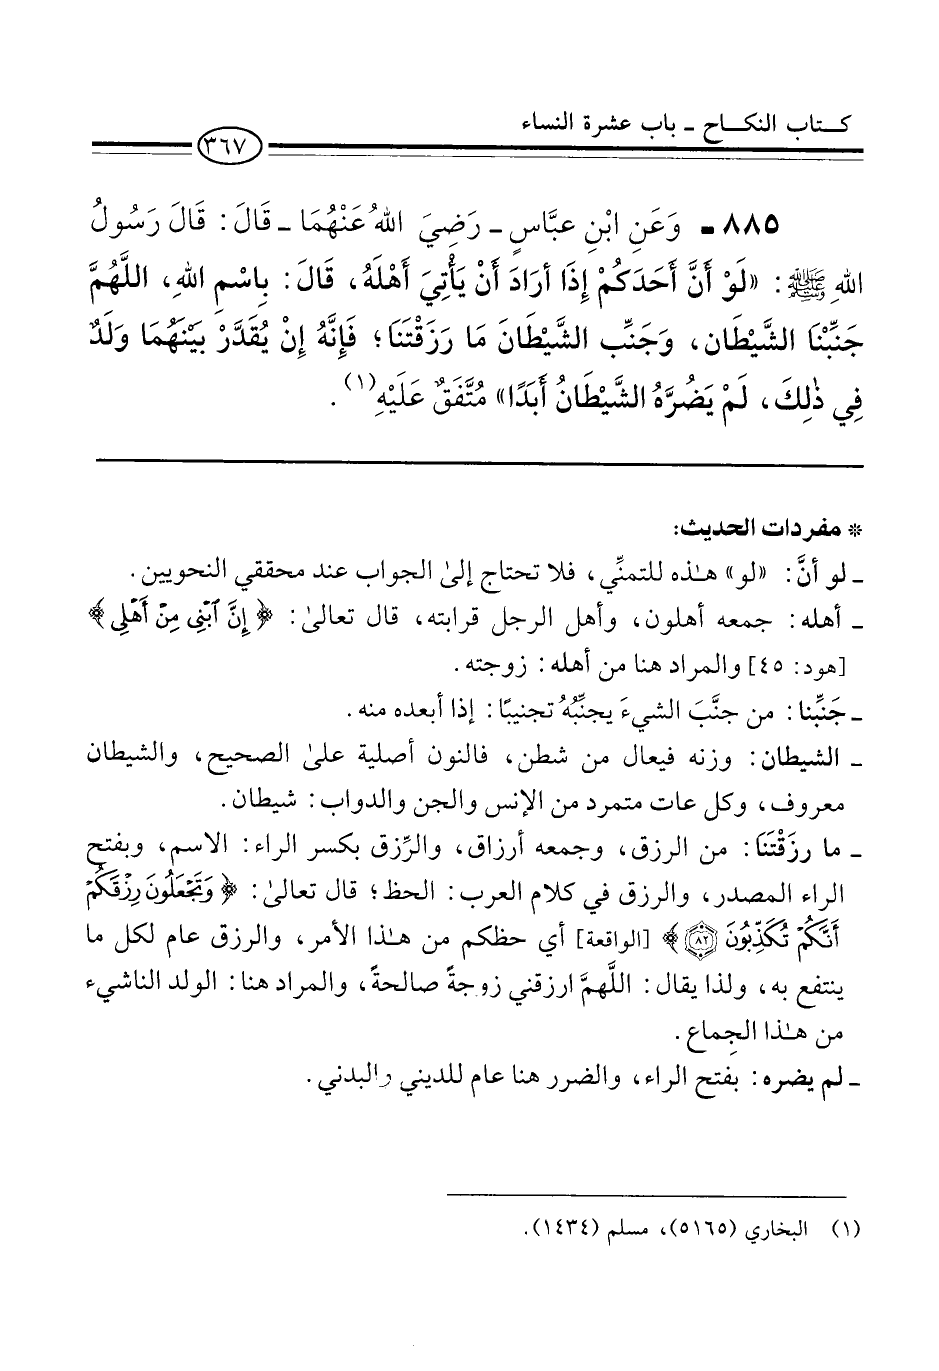 كـتاب النكـاح - باب عشرة النساء
٣٦٧
٨٨٥ - وَعَنِ ابْنِ عبَّاسٍ - رَضِيَ اللهُ عَنْهُمَا - قَالَ: قَالَ رَسُولُ
اللهِ ﷺ: «لَوْ أَنَّ أَحَدَكُمْ إِذَا أَرَادَ أَنْ يَأْتِيَ أَهْلَهُ، قَالَ: بِاسْمِ اللهِ، اللَّهُمَّ
جَنِّبْنَا الشَّيْطَان، وَجَنِّبِ الشَّيْطَانَ مَا رَزَقْتَنَا؛ فَإِنَّهُ إِنْ يُقَدَّرْ بَيْنَهُمَا وَلَدٌ
فِي ذٰلِكَ، لَمْ يَضُرَّهُ الشَّيْطَانُ أَبَدًا» مُتَّفَقٌ عَلَيْهِ(١).
* مفردات الحديث:
- لو أنَّ: «لو» هـٰذه للتمنِّي، فلا تحتاج إلىٰ الجواب عند محققي النحويين.
- أهله: جمعه أهلون، وأهل الرجل قرابته، قال تعالىٰ: ﴿إِنَّ ٱبْنِى مِنْ أَهْلِى﴾
[هود: ٤٥] والمراد هنا من أهله: زوجته.
- جَنِّبنا: من جنَّبَ الشيءَ يجنِّبُهُ تجنيبًا: إذا أبعده منه.
- الشيطان: وزنه فيعال من شطن، فالنون أصلية علىٰ الصحيح، والشيطان
معروف، وكل عات متمرد من الإنس والجن والدواب: شيطان.
- ما رزقْتَنَا: من الرزق، وجمعه أرزاق، والرِّزق بكسر الراء: الاسم، وبفتح
الراء المصدر، والرزق في كلام العرب: الحظ؛ قال تعالىٰ: ﴿وَتَجْعَلُونَ رِزْقَكُمْ
أَنَّكُمْ تُكَذِّبُونَ ٨٢﴾ [الواقعة] أي حظكم من هـٰذا الأمر، والرزق عام لكل ما
ينتفع به، ولذا يقال: اللَّهمَّ ارزقني زوجةً صالحةً، والمراد هنا: الولد الناشيء
من هـٰذا الجِماع.
- لم يضره: بفتح الراء، والضرر هنا عام للديني والبدني.
(١) البخاري (٥١٦٥)، مسلم (١٤٣٤).